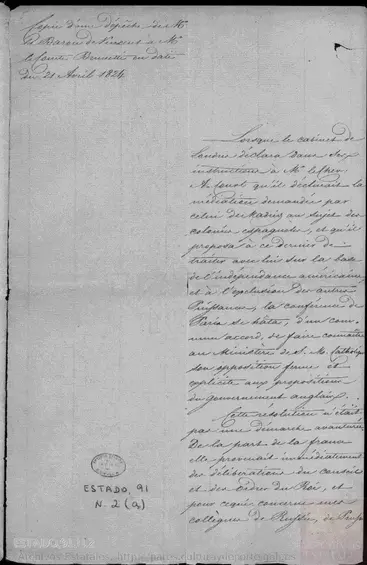 Copie d'une dépêche de Mr
le Baron de Vincent à Mr
le Comte Brunetti en date
du 21 Avril 1824.
Lorsque le cabinet de
Londres déclara dans ses
instructions à Mr le Chev.
A'Court qu'il déclinait la
médiation demandée par
celui de Madrid au sujet des
colonies espagnoles, et qu'il
proposa à ce dernier de
traiter avec lui sur la base
de l'indépendance américaine
et à l'exclusion des autres
Puissances, la conférence de
Paris se hâta, d'un com-
mun accord, de faire connaître
au Ministère de S. M. Catholique
son opposition ferme et
explicite aux propositions
du gouvernement anglais.
Cette résolution n'était
pas une démarche aventurée
De la part de la france
elle provenait immédiatement
des délibérations du conseil
et des ordres du Roi, et
pour ce qui concerne mes
collègues de Russie, de Prusse
ESTADO, 91
N. 2 (a)